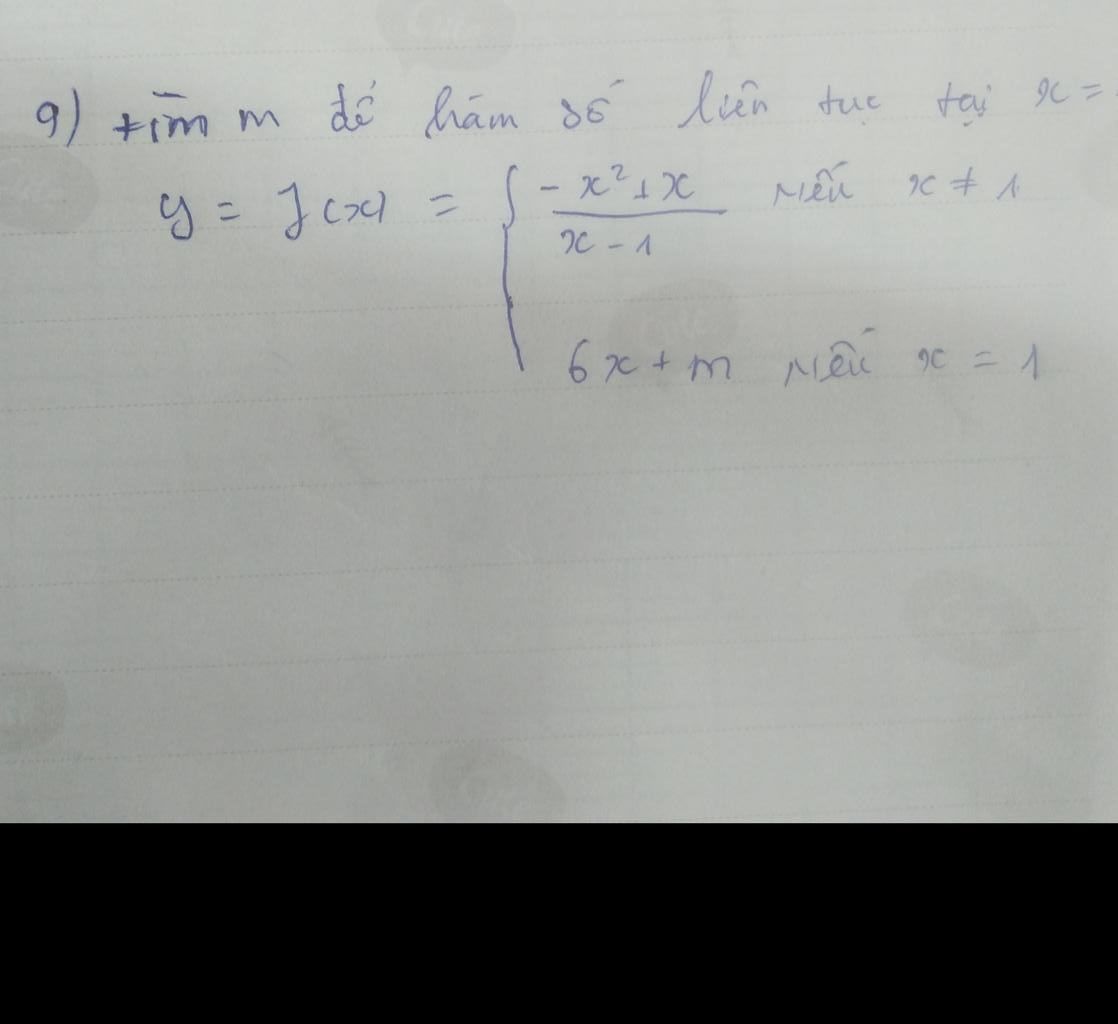 9) tìm m để hàm số liên tục tại x =
y = f(x) = { (-x² + x)/(x - 1) nếu x ≠ 1
6x + m nếu x = 1